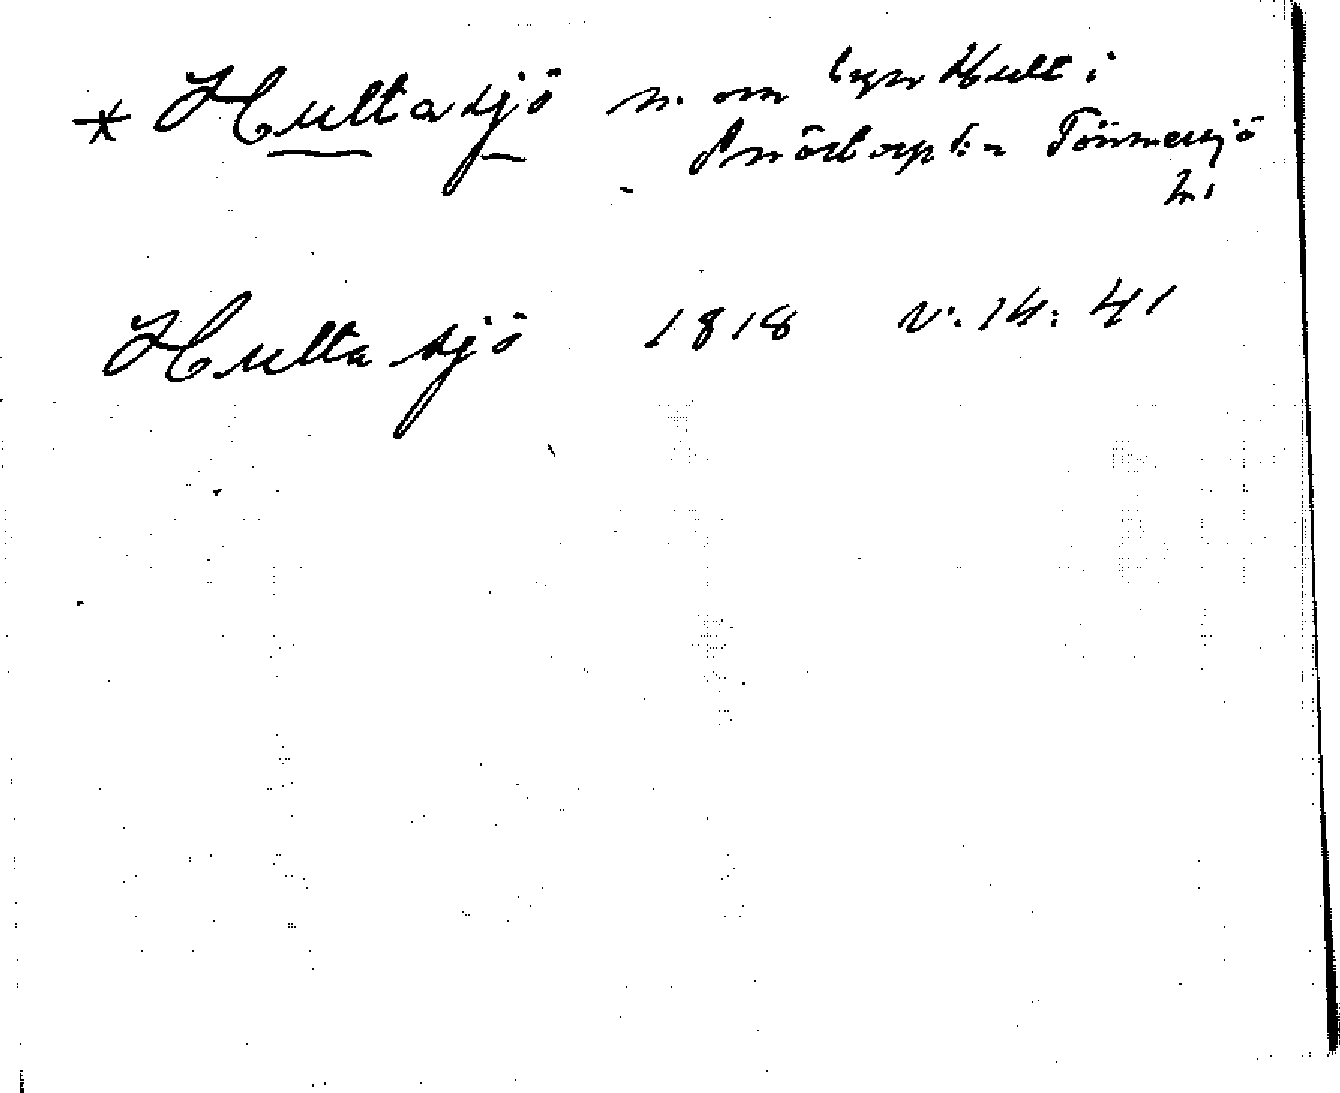 * Hultasjö n. om byn Hult i
Snöstorp s:n Tönnersjö
h.
Hulta sjö 1818 v. 14: 41